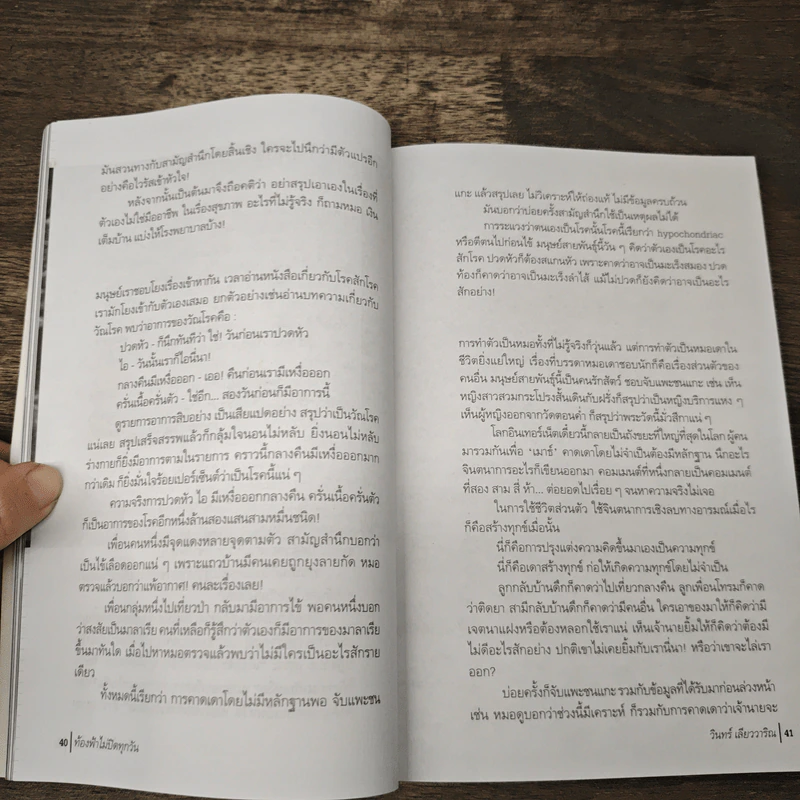 มันสวนทางกับสามัญสำนึกโดยสิ้นเชิง ใครจะไปนึกว่ามีตัวแปรอีก
อย่างคือไวรัสเข้าหัวใจ!
หลังจากนั้นเป็นต้นมาจึงถือคติว่า อย่าสรุปเอาเองในเรื่องที่
ตัวเองไม่ใช่มืออาชีพ ในเรื่องสุขภาพ อะไรที่ไม่รู้จริง ก็ถามหมอ เงิน
เต็มบ้าน แบ่งให้โรงพยาบาลบ้าง!
มนุษย์เราชอบโยงเรื่องเข้าหากัน เวลาอ่านหนังสือเกี่ยวกับโรคสักโรค
เรามักโยงเข้ากับตัวเองเสมอ ยกตัวอย่างเช่นอ่านบทความเกี่ยวกับ
วัณโรค พบว่าอาการของวัณโรคคือ :
ปวดหัว - ก็นึกทันทีว่า ใช่! วันก่อนเราปวดหัว
ไอ - วันนั้นเราก็ไอนี่นา!
กลางคืนมีเหงื่อออก - เออ! คืนก่อนเรามีเหงื่อออก
ครั่นเนื้อครั่นตัว - ใช่อีก... สองวันก่อนก็มีอาการนี้
ดูรายการอาการสิบอย่าง เป็นเสียแปดอย่าง สรุปว่าเป็นวัณโรค
แน่เลย สรุปเสร็จสรรพแล้วก็กลุ้มใจนอนไม่หลับ ยิ่งนอนไม่หลับ
ร่างกายก็ยิ่งมีอาการตามในรายการ คราวนี้กลางคืนมีเหงื่อออกมาก
กว่าเดิม ก็ยิ่งมั่นใจร้อยเปอร์เซ็นต์ว่าเป็นโรคนี้แน่ ๆ
ความจริงการปวดหัว ไอ มีเหงื่อออกกลางคืน ครั่นเนื้อครั่นตัว
ก็เป็นอาการของโรคอีกหนึ่งล้านสองแสนสามหมื่นชนิด!
เพื่อนคนหนึ่งมีจุดแดงหลายจุดตามตัว สามัญสำนึกบอกว่า
เป็นไข้เลือดออกแน่ ๆ เพราะแถวบ้านมีคนเคยถูกยุงลายกัด หมอ
ตรวจแล้วบอกว่าแพ้อากาศ! คนละเรื่องเลย!
เพื่อนกลุ่มหนึ่งไปเที่ยวป่า กลับมามีอาการไข้ พอคนหนึ่งบอก
ว่าสงสัยเป็นมาลาเรีย คนที่เหลือก็รู้สึกว่าตัวเองก็มีอาการของมาลาเรีย
ขึ้นมาทันใด เมื่อไปหาหมอตรวจแล้วพบว่าไม่มีใครเป็นอะไรสักราย
เดียว
ทั้งหมดนี้เรียกว่า การคาดเดาโดยไม่มีหลักฐานพอ จับแพะชน
40 ท้องฟ้าไม่ปิดทุกวัน
แกะ แล้วสรุปเลย ไม่วิเคราะห์ให้ถ่องแท้ ไม่มีข้อมูลครบถ้วน
มันบอกว่าบ่อยครั้งสามัญสำนึกใช้เป็นเหตุผลไม่ได้
การระแวงว่าตนเองเป็นโรคนั้นโรคนี้เรียกว่า hypochondriac
หรือตีตนไปก่อนไข้ มนุษย์สายพันธุ์นี้วัน ๆ คิดว่าตัวเองเป็นโรคอะไร
สักโรค ปวดหัวก็ต้องสแกนหัว เพราะคาดว่าอาจเป็นมะเร็งสมอง ปวด
ท้องก็คาดว่าอาจเป็นมะเร็งลำไส้ แม้ไม่ปวดก็ยังคิดว่าอาจเป็นอะไร
สักอย่าง!
การทำตัวเป็นหมอทั้งที่ไม่รู้จริงก็วุ่นแล้ว แต่การทำตัวเป็นหมอเดาใน
ชีวิตยิ่งแย่ใหญ่ เรื่องที่บรรดาหมอเดาชอบนักก็คือเรื่องส่วนตัวของ
คนอื่น มนุษย์สายพันธุ์นี้เป็นคนรักสัตว์ ชอบจับแพะชนแกะ เช่น เห็น
หญิงสาวสวมกระโปรงสั้นเดินกับฝรั่งก็สรุปว่าเป็นหญิงบริการแหง ๆ
เห็นผู้หญิงออกจากวัดตอนค่ำ ก็สรุปว่าพระวัดนี้มั่วสีกาแน่ ๆ
โลกอินเทอร์เน็ตเดี๋ยวนี้กลายเป็นถังขยะที่ใหญ่ที่สุดในโลก ผู้คน
มารวมกันเพื่อ 'เมาธ์' คาดเดาโดยไม่จำเป็นต้องมีหลักฐาน นึกอะไร
จินตนาการอะไรก็เขียนออกมา คอมเมนต์ที่หนึ่งกลายเป็นคอมเมนต์
ที่สอง สาม สี่ ห้า... ต่อยอดไปเรื่อย ๆ จนหาความจริงไม่เจอ
ในการใช้ชีวิตส่วนตัว ใช้จินตนาการเชิงลบทางอารมณ์เมื่อไร
ก็คือสร้างทุกข์เมื่อนั้น
นี่ก็คือการปรุงแต่งความคิดขึ้นมาเองเป็นความทุกข์
นี่ก็คือเดาสร้างทุกข์ ก่อให้เกิดความทุกข์โดยไม่จำเป็น
ลูกกลับบ้านดึกก็คาดว่าไปเที่ยวกลางคืน ลูกเพื่อนโทรมก็คาด
ว่าติดยา สามีกลับบ้านดึกก็คาดว่ามีคนอื่น ใครเอาของมาให้ก็คิดว่ามี
เจตนาแฝงหรือต้องหลอกใช้เราแน่ เห็นเจ้านายยิ้มให้ก็คิดว่าต้องมี
ไม่ดีอะไรสักอย่าง ปกติเขาไม่เคยยิ้มกับเรานี่นา! หรือว่าเขาจะไล่เรา
ออก?
บ่อยครั้งก็จับแพะชนแกะ รวมกับข้อมูลที่ได้รับมาก่อนล่วงหน้า
เช่น หมอดูบอกว่าช่วงนี้มีเคราะห์ ก็รวมกับการคาดเดาว่าเจ้านายจะ
วินทร์ เลียววาริณ 41